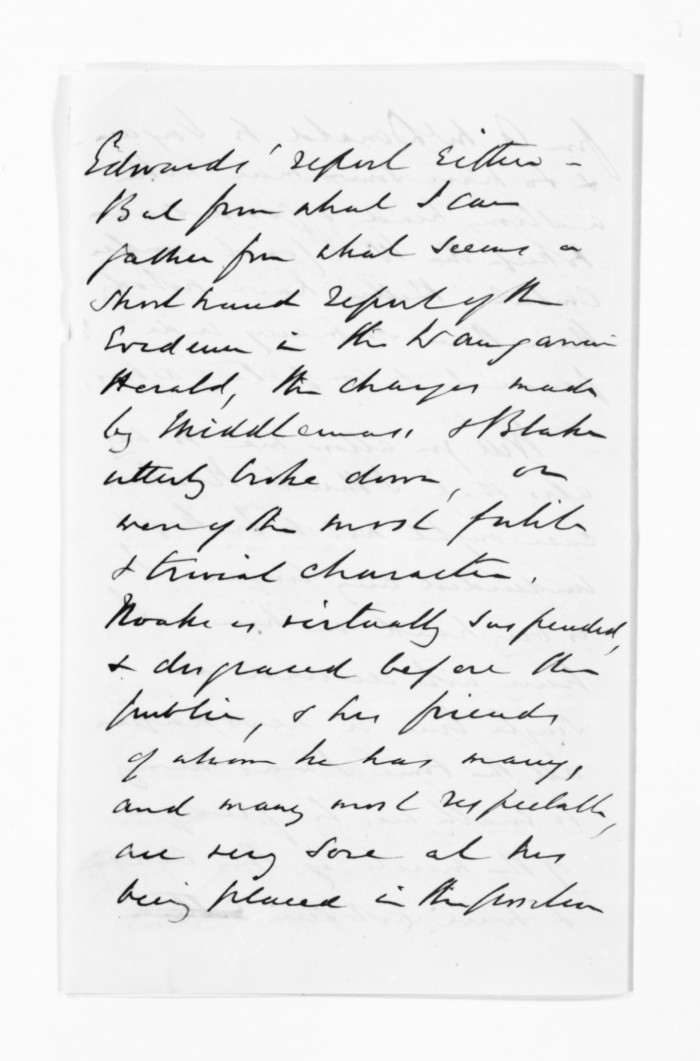 Edwards' report either -
But from what I can
gather from what seems a
short hand report of the
Evidence in the Wanganui
Herald, the charges made
by Middlemas & Blake
utterly broke down, or
were of the most futile
& trivial character.
Noake is virtually suspended,
& disgraced before the
public, & his friends
of whom he has many,
and many most respectable,
are very sore at his
being placed in this position